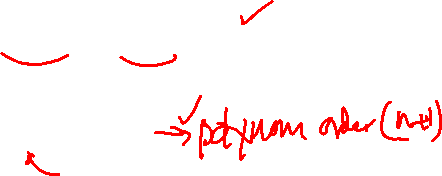 → polynom order (n+1)